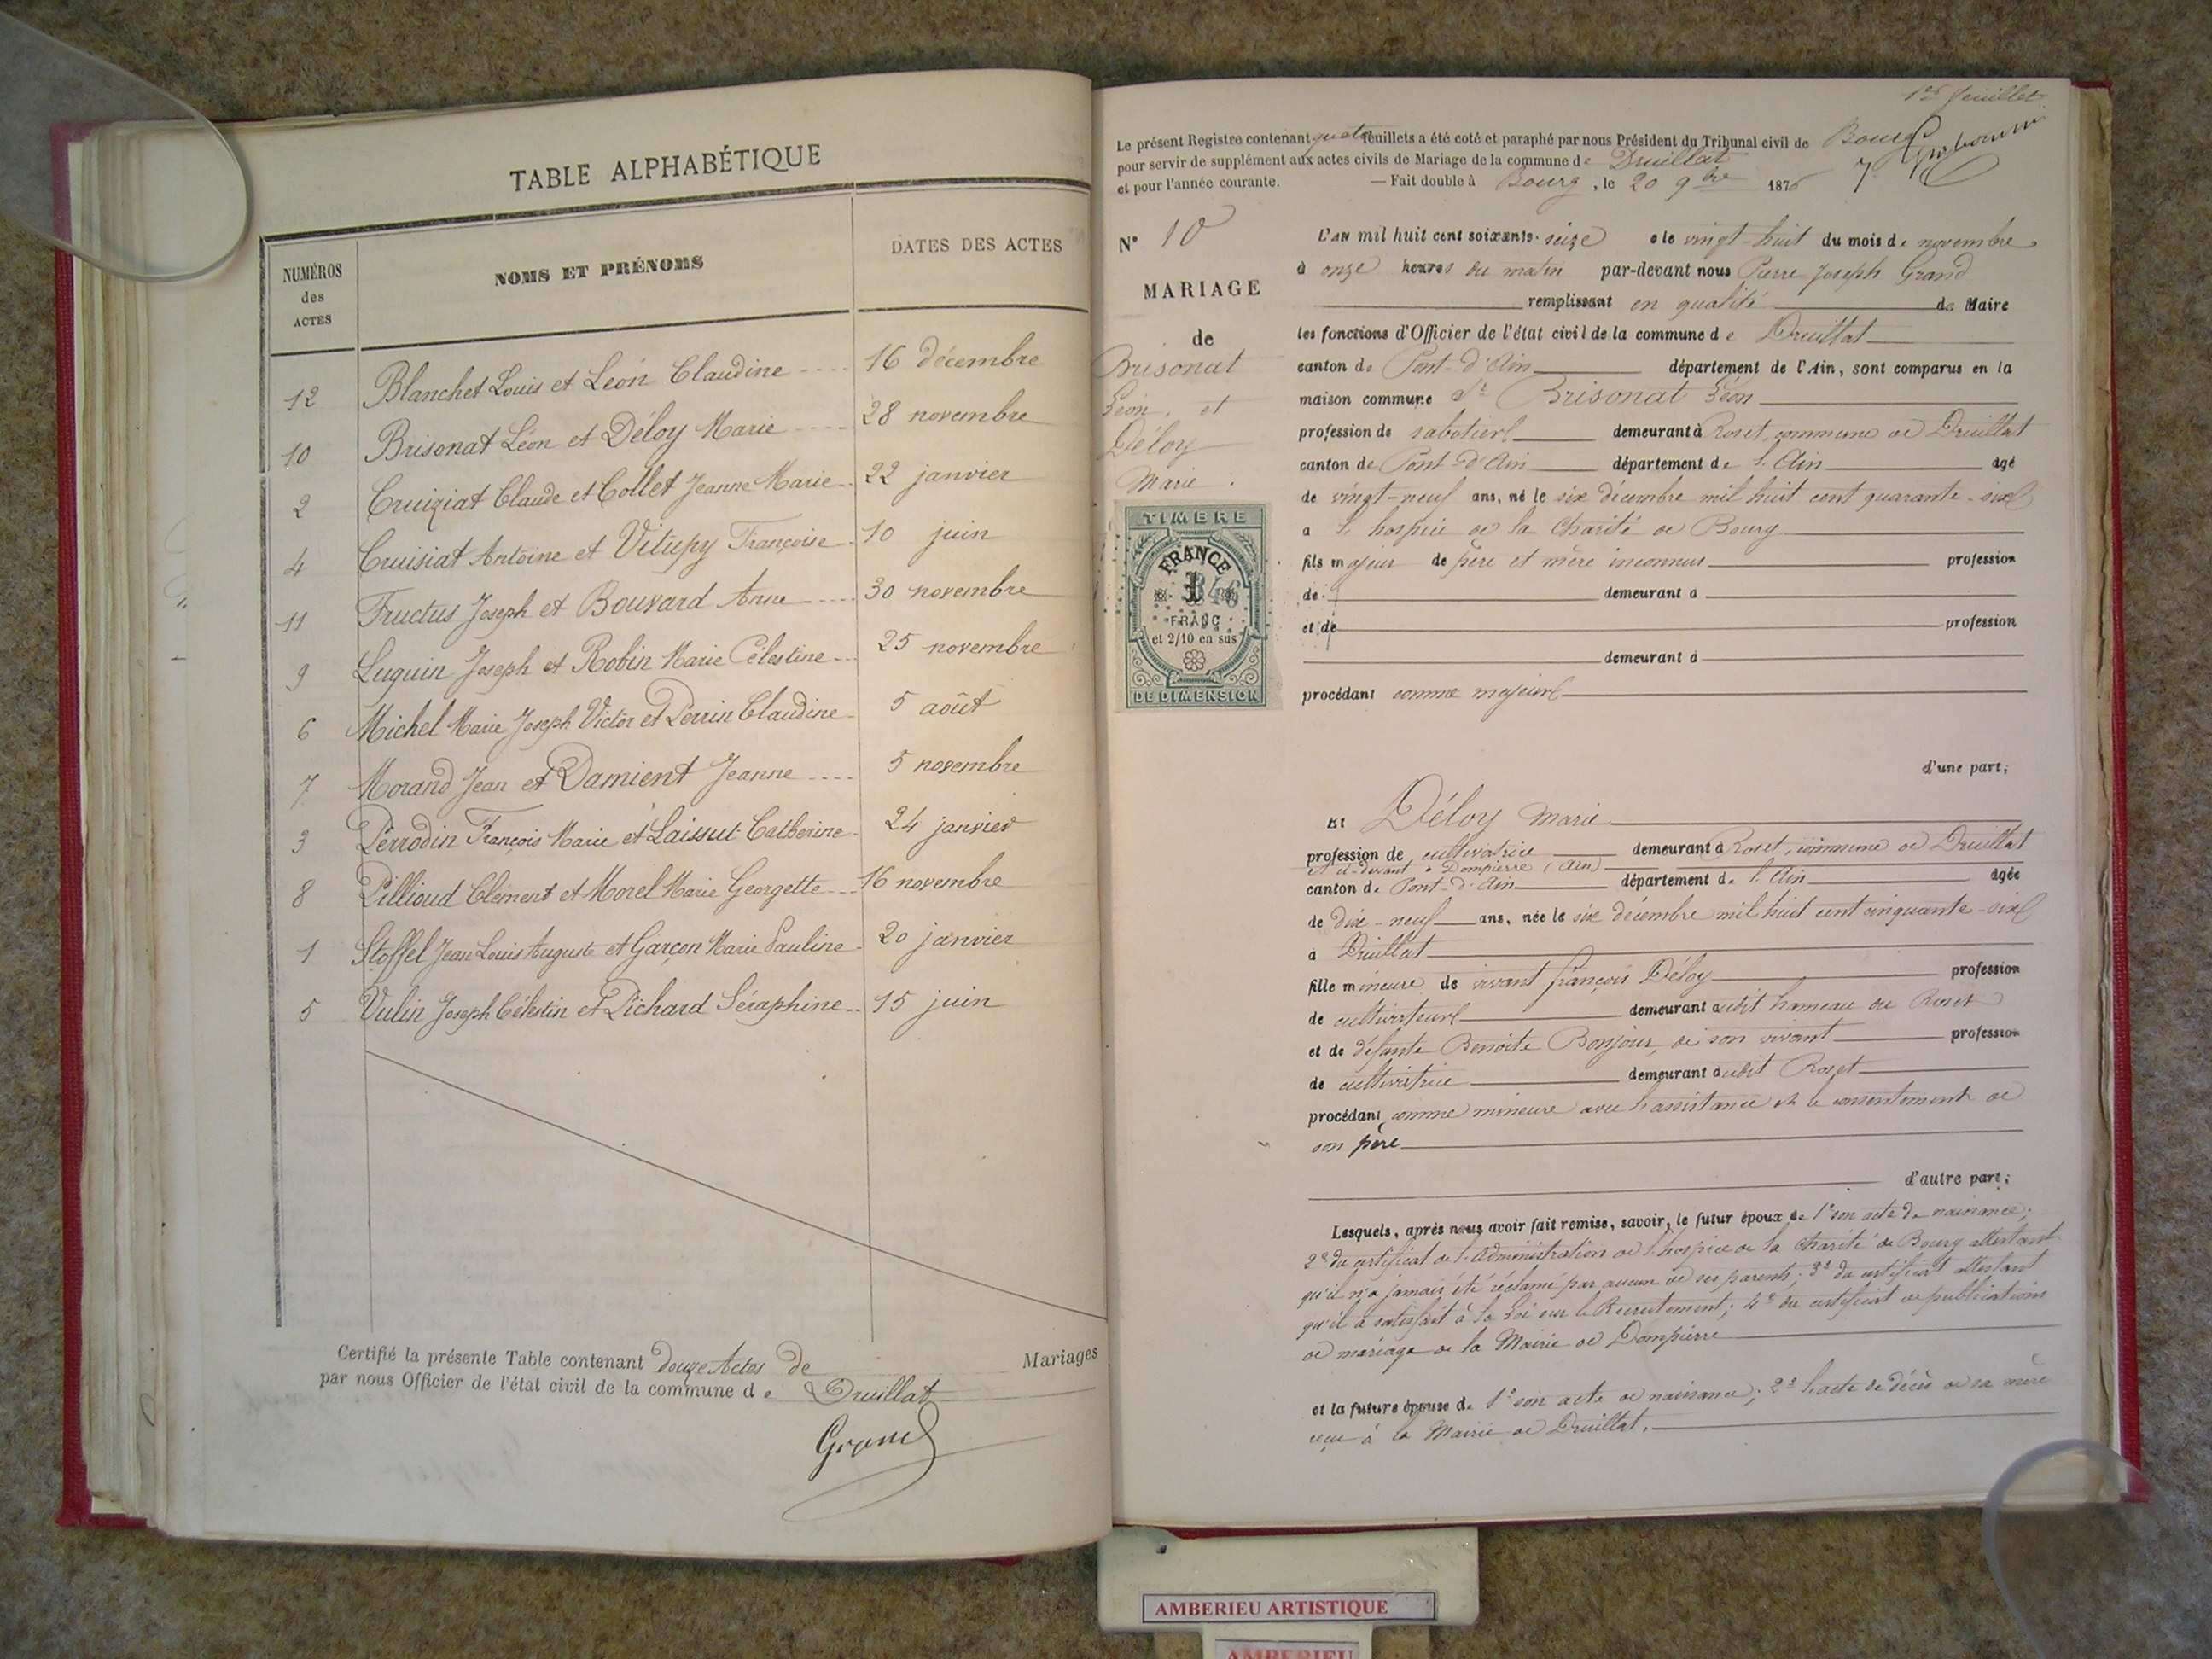 TABLE ALPHABÉTIQUE
NUMÉROS des ACTES
NOMS ET PRÉNOMS
DATES DES ACTES
12 Blanchet Louis et Léon Claudine 16 décembre
10 Brisonat Léon et Déloy Marie 28 novembre
2 Cruiziat Claude et Collet Jeanne Marie 22 janvier
4 Cruisiat Antoine et Vitupy Françoise 10 juin
11 Fructus Joseph et Bouvard Anne 30 novembre
9 Luquin Joseph et Robin Marie Célestine 25 novembre
6 Michel Marie Joseph Victor et Perrin Claudine 5 août
7 Morand Jean et Damient Jeanne 5 novembre
3 Perrodin François Marie et Laissut Catherine 24 janvier
8 Pillioud Clément et Morel Marie Georgette 16 novembre
1 Stoffel Jean Louis Auguste et Garçon Marie Pauline 20 janvier
5 Vulin Joseph Célestin et Pichard Séraphine 15 juin
Certifié la présente Table contenant douze Actes de Mariages
par nous Officier de l'état civil de la commune de Druillat
Grand
1er feuillet
Le présent Registre contenant quatre feuillets a été coté et paraphé par nous Président du Tribunal civil de Bourg
pour servir de supplément aux actes civils de Mariage de la commune de Druillat
et pour l'année courante. — Fait double à Bourg, le 20 9bre 1876
N° 10
MARIAGE
de
Brisonat
Léon, et
Déloy
Marie.
TIMBRE
FRANCE
1
346
FRANC
et 2/10 en sus
DE DIMENSION
L'an mil huit cent soixante-seize le vingt-huit du mois de novembre
à onze heures du matin par-devant nous Pierre Joseph Grand
remplissant en qualité de Maire
les fonctions d'Officier de l'état civil de la commune de Druillat
canton de Pont-d'Ain département de l'Ain, sont comparus en la
maison commune Sr Brisonat Léon
profession de sabotier demeurant à Roset, commune de Druillat
canton de Pont-d'Ain département de l'Ain âgé
de vingt-neuf ans, né le six décembre mil huit cent quarante-six
a l'hospice de la Charité de Bourg
fils majeur de père et mère inconnus profession
de demeurant à
et de profession
demeurant à
procédant comme majeur
d'une part;
Et Déloy Marie
profession de cultivatrice demeurant à Roset, commune de Druillat
et ci-devant à Dompierre (Ain)
canton de Pont-d'Ain département de l'Ain âgée
de dix-neuf ans, née le six décembre mil huit cent cinquante-six
à Druillat
fille mineure de vivant françois Déloy profession
de cultivateur demeurant audit hameau de Roset
et de défunte Benoite Bonjour, de son vivant profession
de cultivatrice demeurant audit Roset
procédant comme mineure avec l'assistance et le consentement de
son père
d'autre part;
Lesquels, après nous avoir fait remise, savoir, le futur époux de 1° son acte de naissance;
2° du certificat de l'administration de l'hospice de la Charité de Bourg attestant
qu'il n'a jamais été réclamé par aucun de ses parents; 3° du certificat attestant
qu'il a satisfait à la Loi sur le Recrutement; 4° du certificat de publications
de mariage de la Mairie de Dompierre
et la future épouse de 1° son acte de naissance; 2° l'acte de décès de sa mère
reçu à la Mairie de Druillat.
AMBERIEU ARTISTIQUE
AMBERIEU